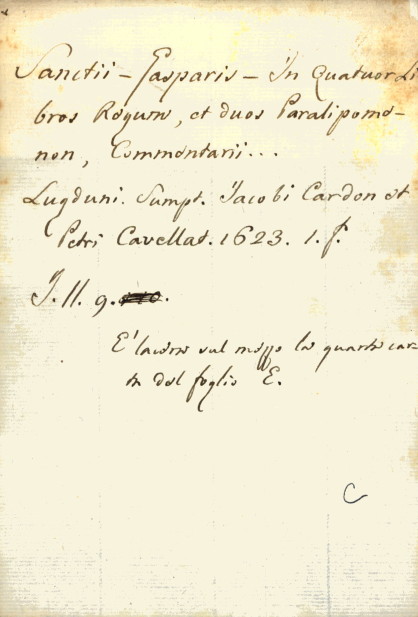 Sanctii – Gasparis – In Quatuor Li
bros Regum, et duos Paralipome-
non, Commentarii...
Lugduni. Sumpt. Jacobi Cardon et
Petri Cavellat. 1623. 1. f.
J. II. 9.
E' lacera sul mezzo la quarta car-
ta del foglio E.
C